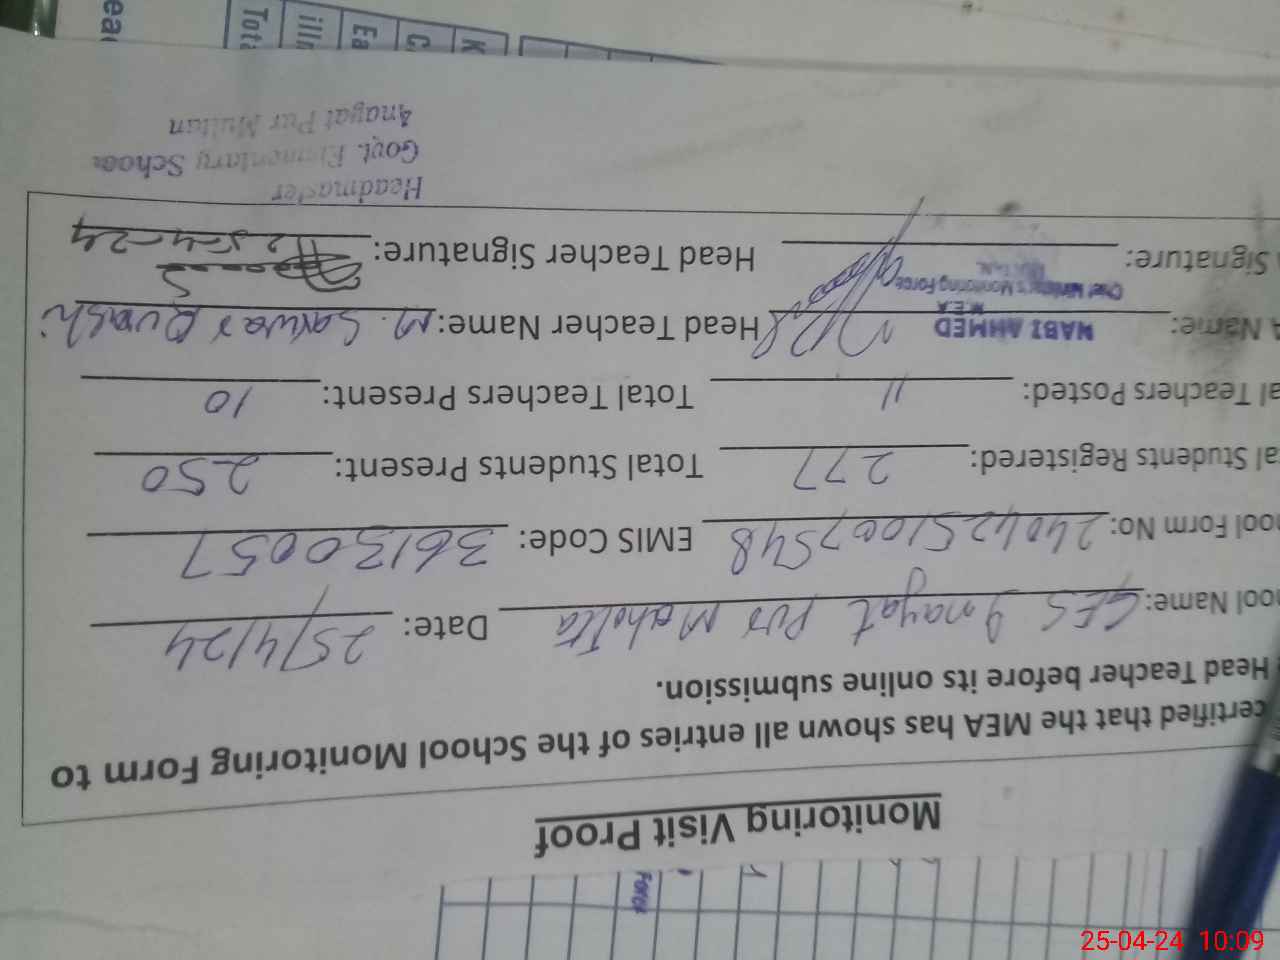 Monitoring Visit Proof
certified that the MEA has shown all entries of the School Monitoring Form to
Head Teacher before its online submission.
ool Name: GES Inayat Pur Mahota Date: 25/4/24
ool Form No: 2404251007548 EMIS Code: 36130057
al Students Registered: 277 Total Students Present: 250
al Teachers Posted: 11 Total Teachers Present: 10
Name: NABI AHMED Head Teacher Name: M. Sarwar Qureshi
M.E.A
Chief Minister's Monitoring Force
Signature: Head Teacher Signature: 25-4-24
Headmaster
Govt. Elementary School
Anayat Pur Multan
Force
25-04-24 10:09